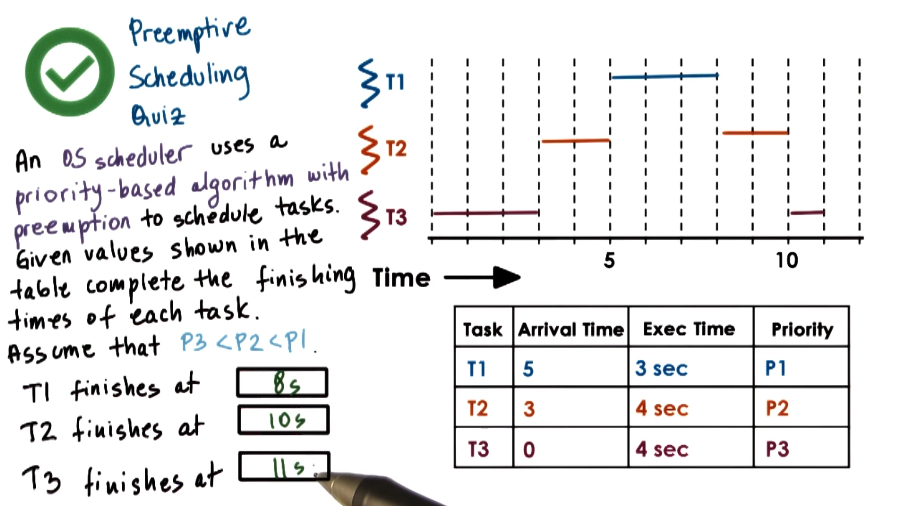 Preemptive
Scheduling
Quiz
An OS scheduler uses a
priority-based algorithm with
preemption to schedule tasks.
Given values shown in the
table complete the finishing
times of each task.
Assume that P3 < P2 < P1.
T1 finishes at 8s
T2 finishes at 10s
T3 finishes at 11s
T1
T2
T3
5 10
Time
Task Arrival Time Exec Time Priority
T1 5 3 sec P1
T2 3 4 sec P2
T3 0 4 sec P3